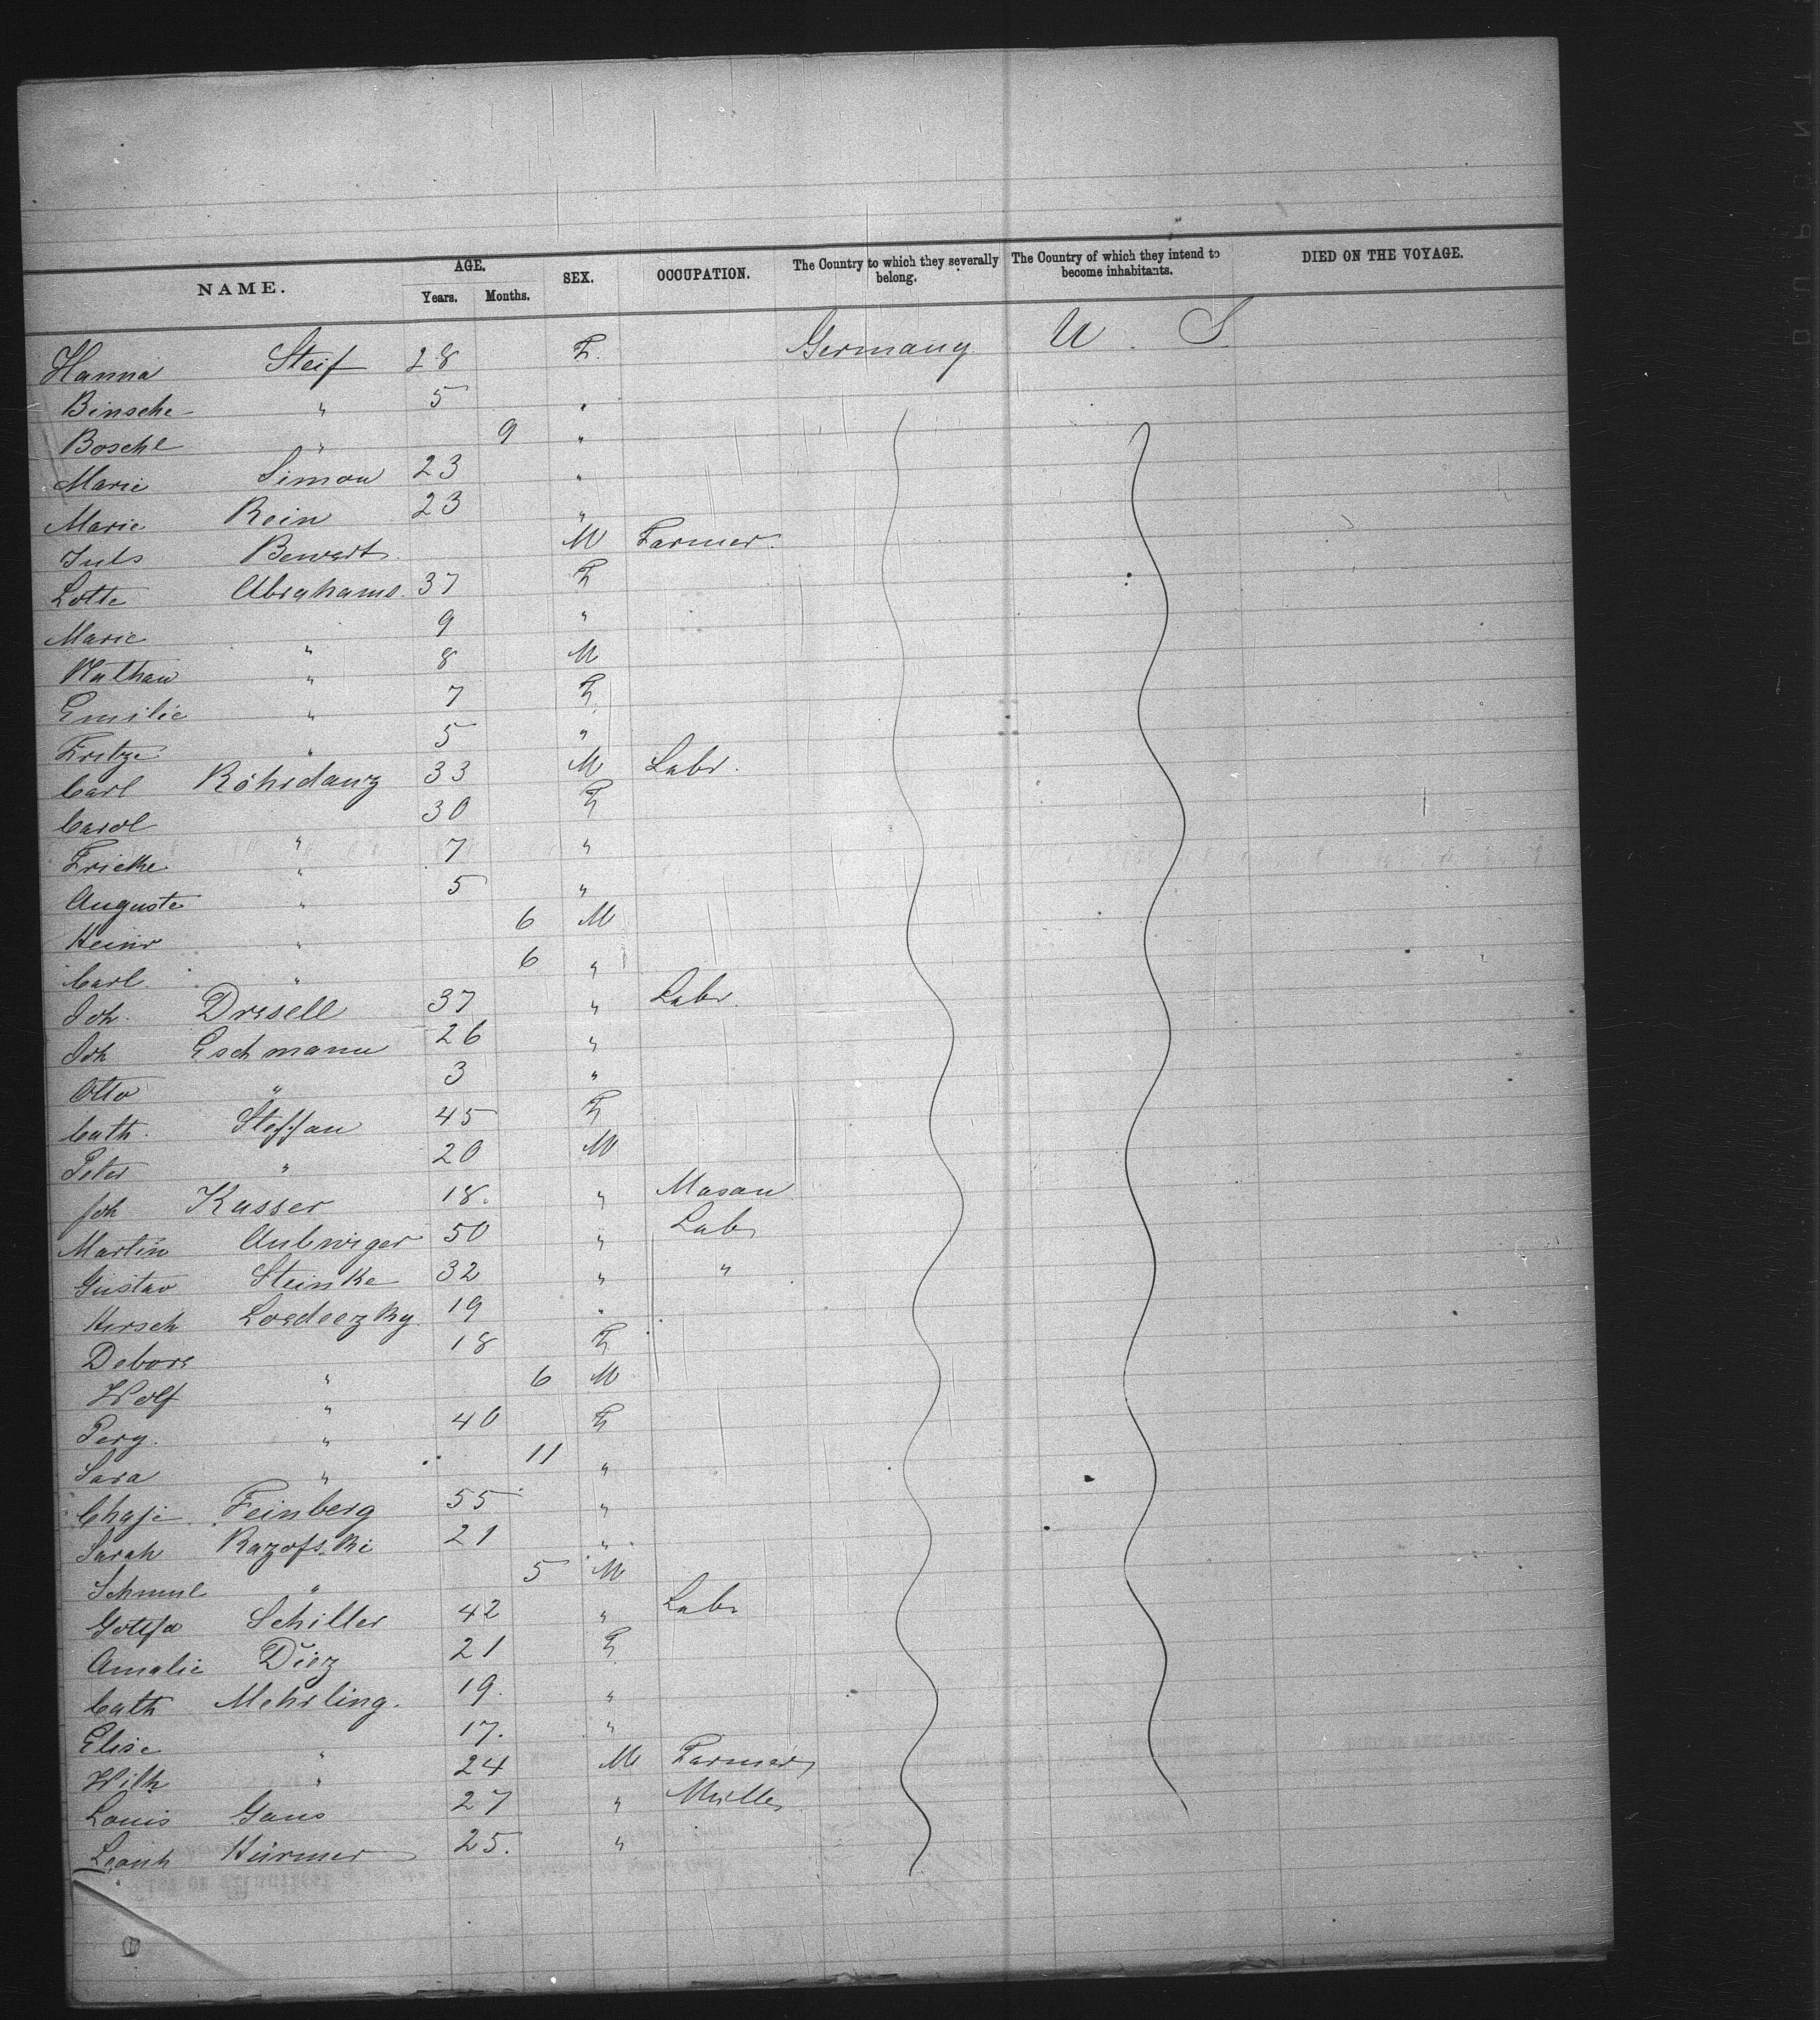 NAME. AGE. SEX. OCCUPATION. The Country to which they severally belong. The Country of which they intend to become inhabitants. DIED ON THE VOYAGE.
Years. Months.
Hanna Steif 28 F. Germany U. S.
Binsche " 5 "
Boschl " 9 "
Marie Simon 23 "
Marie Rein 23 "
Juls Bewert M Farmer.
Lotte Abrahams 37 F
Marie " 9 "
Nathan " 8 M
Emilie " 7 F
Fritze " 5 "
Carl Röhrdanz 33 M Labr.
Carol " 30 F
Fricke " 7 "
Auguste " 5 "
Heinr " 6 M
Carl " 6 "
Joh. Dresell 37 " Labr.
Joh Eschmann 26 "
Otto " 3 "
Cath. Steffan 45 F
Peter " 20 M
Joh Kusser 18. " Mason
Martin 50 " Lab
Gustav Steinke 32 " "
Hirsch 19 "
Debora " 18 F
Wolf " 6 M
Perg. " 40 F
Sara " 11 "
Chaje Feinberg 55 "
Sarah Razofski 21 "
Schmul " 5 M
Schiller 42 " Labr
Amalie Diez 21 F
Cath Mehrling. 19. "
Elise " 17. "
Wilh " 24 M Farmer
Louis Gans 27 " Miller
Leonh Hürmer 25. "